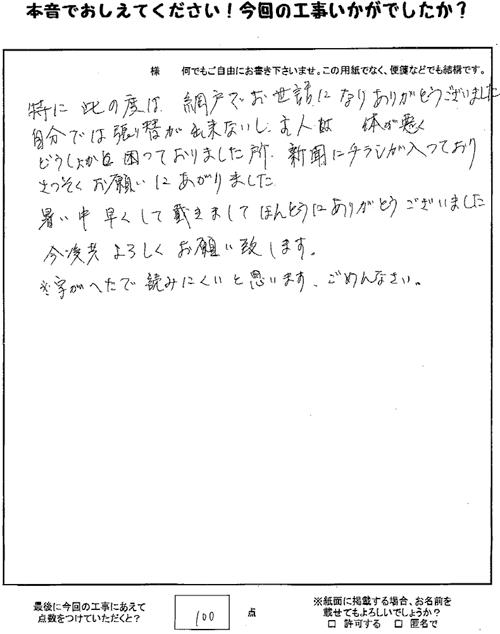 本音でおしえてください！今回の工事いかがでしたか？
様　何でもご自由にお書き下さいませ。この用紙でなく、便箋などでも結構です。
特に此の度は 網戸でお世話になりありがとうございました
自分では張り替が出来ないし、主人は 体が悪く
どうしょかと困っておりました所、新聞にチラシが入っており
さっそくお願いにあがりました
暑い中 早くして戴きましてほんとうにありがとうございました
今後共よろしくお願い致します。
※字がへたで読みにくいと思います、ごめんなさい。
最後に今回の工事にあえて
点数をつけていただくと？
100 点
※紙面に掲載する場合、お名前を
載せてもよろしいでしょうか？
□ 許可する　□ 匿名で